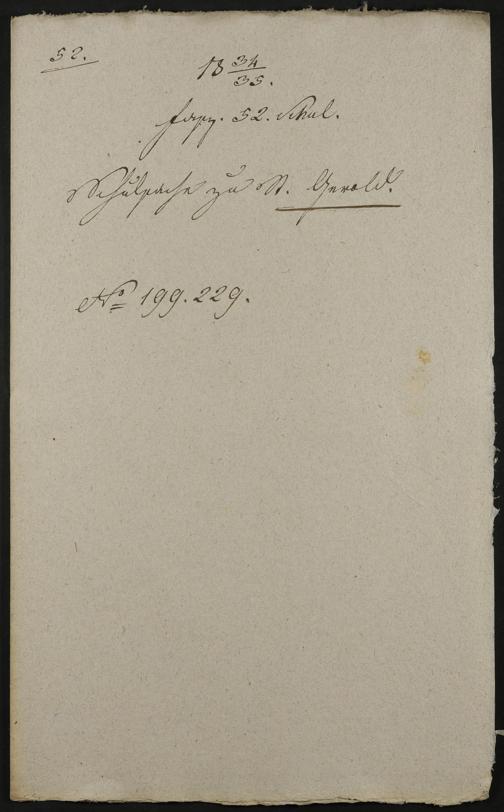 52.
18 34/35.
Fasz. 52. Schul.
Schulsache zu St. Gerold.
No 199. 229.